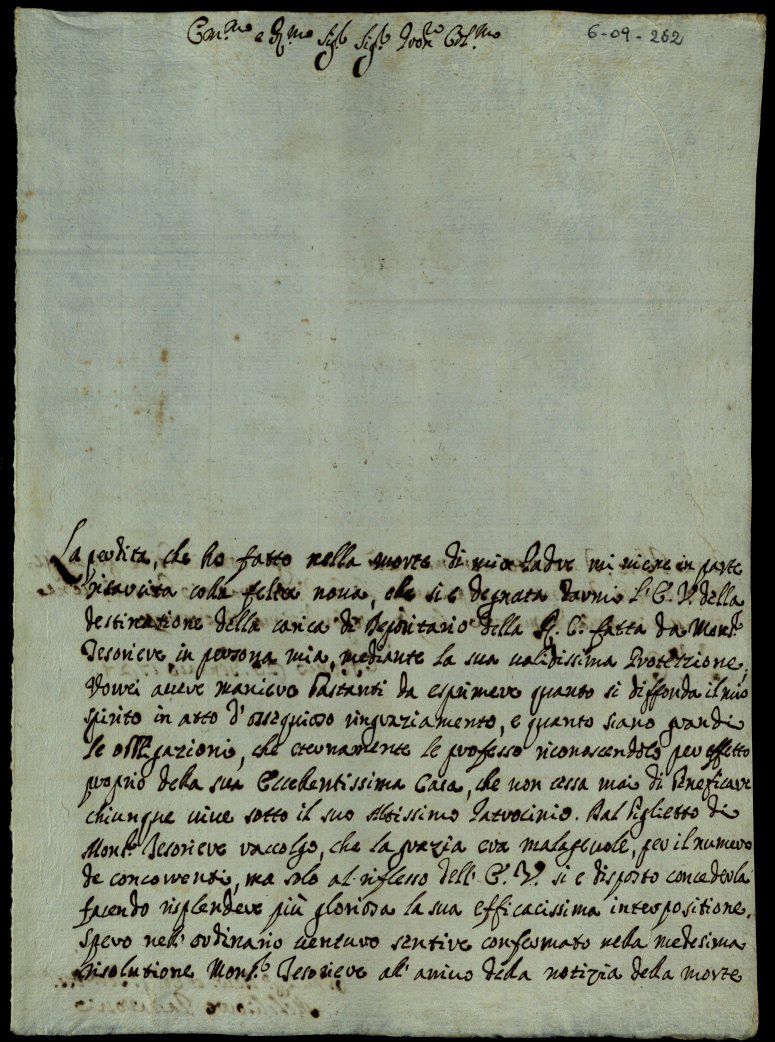 Em.mo e R.mo Sig.r Sig.r Pron Col.mo
6-09-262
La perdita, che ho fatto nella morte di mio Padre mi viene in parte
risarcita colla felice nova, che si è degnata darmi l'E. V. della
destinatione della carica di Depositario della R. C. fatta da Mons.r
Tesoriere in persona mia, mediante la sua validissima Protezzione,
Vorrei avere maniere bastanti da esprimere quanto si diffonda il mio
spirito in atto d'ossequioso ringraziamento, e quanto siano grandi
le obligazioni, che eternamente le professo riconoscendolo per effetto
proprio della sua Eccellentissima Casa, che non cessa mai di beneficare
chiunque vive sotto il suo Altissimo Patrocinio. Dal biglietto di
Mons.r Tesoriere raccolgo, che la grazia era malagevole, per il numero
de concorrenti, ma solo al riflesso dell'E. V. si è disposto concederla
facendo risplendere più gloriosa la sua efficacissima interpositione.
Spero nell'ordinario venturo sentire confermato nella medesima
risolutione Mons.r Tesoriere all'arrivo della notizia della morte